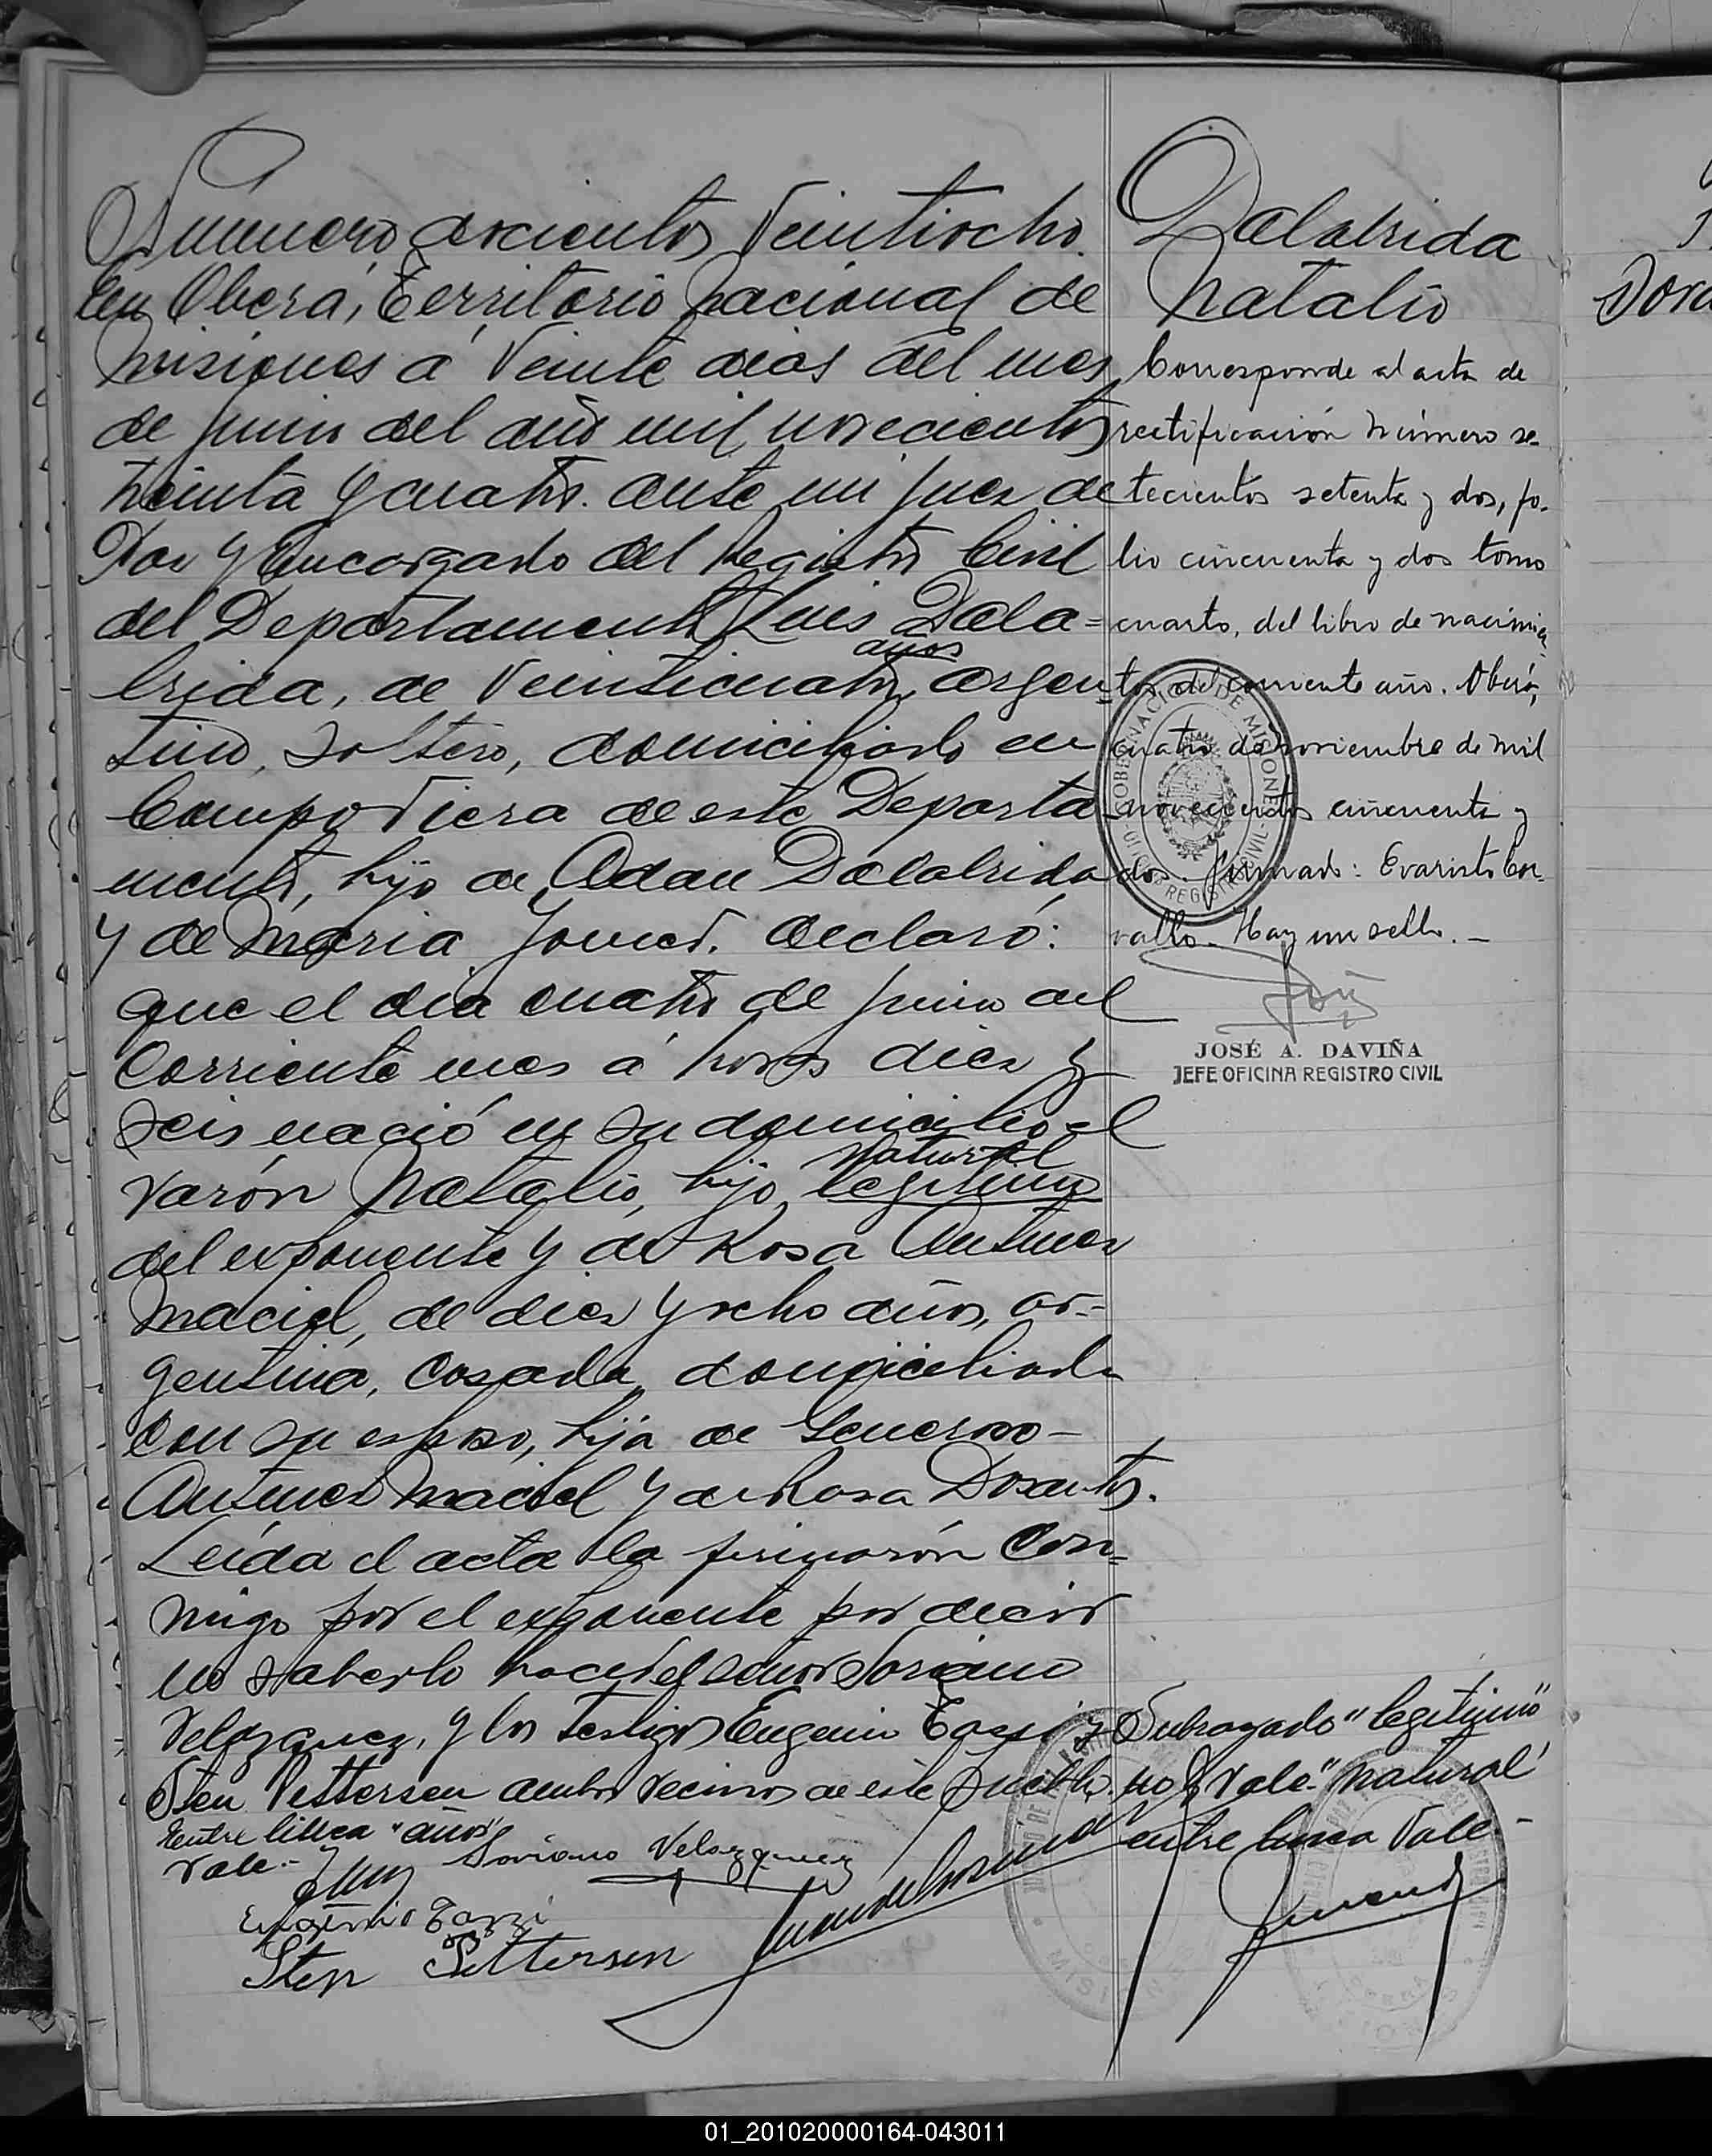 Numero docientos Veintiocho.
En Oberá, Territorio Nacional de
Misiones á Veinte dias del mes
de junio del año mil novecientos
treinta y cuatro. ante mi juez de
Paz y Encargado del Registro Civil
del Departamento, Luis Dala=
años
brida, de Veinticuatro, argen-
tino, soltero, domiciliado en
Campo Viera de este Departa
mento, hijo de Adan Dalabrida
y de Maria declaró:
que el dia cuatro de junio del
Corriente mes á horas diez y
seis nació en su domicilio el
natural
varón Natalio, hijo legitimo
del exponente y de Rosa Antunez
Maciel, de diez y ocho años, ar-
gentina, casada, domiciliada
con su esposo, hija de Generoso
Antunez Maciel y de Rosa Dosantos.
Leida el acta la firmarón con=
migo por el exponente por decir
no saberlo hacer el señor Soriano
Velazquez, y los testigos Eugenio Tozzi y
Sten Pettersen ambos vecinos de este pueblo.
Entre linea "años"
Vale.-
Soriano Velazquez
Eugenio Tozzi
Sten Pettersen
Dalabrida
Natalio
Corresponde al acta de
rectificación número se-
tecientos setenta y dos, fo-
lio cincuenta y dos tomo
cuarto, del libro de nacimien
tos del corriente año. Oberá,
cuatro de noviembre de mil
novecientos cincuenta y
dos. firmado: Evaristo Cor-
vallo. Hay un sello.-
GOBERNACION DE MISIONES
REGISTRO CIVIL
JOSÉ A. DAVIÑA
JEFE OFICINA REGISTRO CIVIL
Subrayado "legitimo"
no Vale. "natural"
entre linea Vale.-
MISIONES
01_201020000164-043011